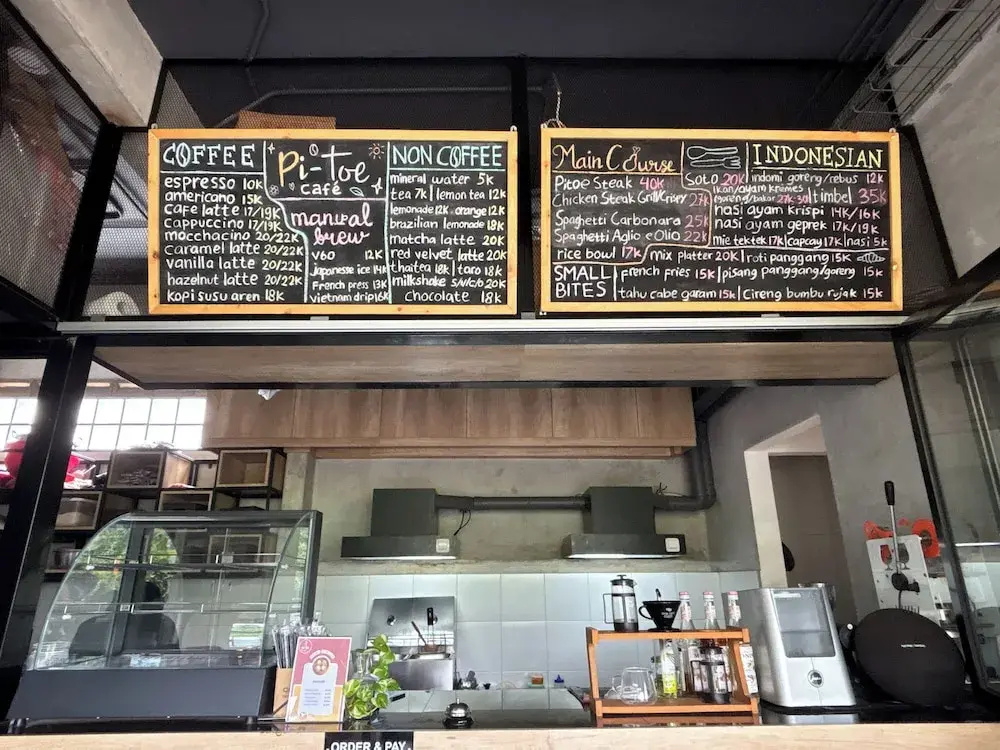 COFFEE
espresso 10K
americano 15K
cafe latte 17/19K
cappuccino 17/19K
mocchacino 20/22K
caramel latte 20/22K
vanilla latte 20/22K
hazelnut latte 20/22K
kopi susu aren 18K
Pi-toe
café
manual
brew
V60 12K
Japannese ice 14K
French press 13K
vietnam drip 16K
NON COFFEE
mineral water 5K
tea 7K | lemon tea 12K
lemonade 12K • orange 12K
brazilian lemonade 18K
matcha latte 20K
red velvet latte 20K
thaitea 18K | taro 18K
milkshake S/V/C/O 20K
chocolate 18K
Main Course
Pitoe Steak 40K
Chicken Steak Grill/Crispy 27K
Spaghetti Carbonara 25K
Spaghetti Aglio e Olio 22K
rice bowl 17K
Soto 20K
INDONESIAN
indomi goreng/rebus 12K
ikan/ayam kremes
goreng/bakar 27K-30
timbel 35K
nasi ayam krispi 14K/16K
nasi ayam geprek 17K/19K
mie tektek 17K | capcay 17K | nasi 5K
mix platter 20K | roti panggang 15K
SMALL
BITES
french fries 15K | pisang panggang/goreng 15K
tahu cabe garam 15K | Cireng bumbu rujak 15K
ORDER & PAY